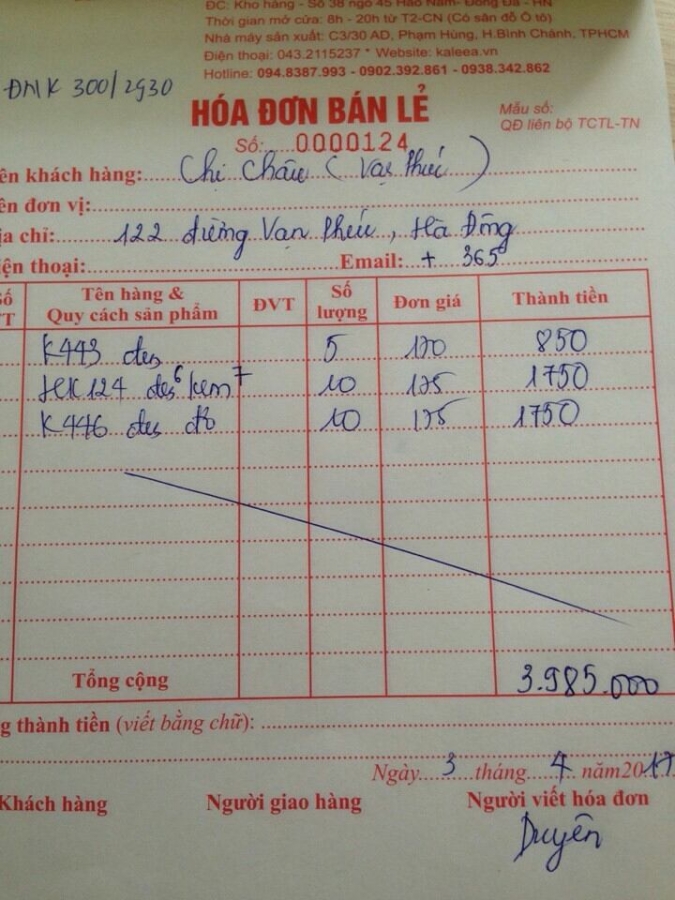 ĐC: Kho hàng - Số 38 ngõ 45 Hào Nam- Đống Đa - HN
Thời gian mở cửa: 8h - 20h từ T2-CN (Có sân đỗ Ô tô)
Nhà máy sản xuất: C3/30 AD, Phạm Hùng, H.Bình Chánh, TPHCM
Điện thoại: 043.2115237 * Website: kaleea.vn
Hotline: 094.8387.993 - 0902.392.861 - 0938.342.862
ĐNK 300/2930
HÓA ĐƠN BÁN LẺ
Mẫu số:
QĐ liên bộ TCTL-TN
Số: 0000124
ên khách hàng: Chị Châu (Vạn Phúc)
ên đơn vị:
ịa chỉ: 122 đường Vạn Phúc, Hà Đông
iện thoại: Email: + 365
Số TT Tên hàng & Quy cách sản phẩm ĐVT Số lượng Đơn giá Thành tiền
K443 đes 5 170 850
HK124 đes 6 kem 7 10 175 1750
K446 đes đỏ 10 175 1750
Tổng cộng 3.985.000
g thành tiền (viết bằng chữ):
Ngày 3 tháng 4 năm 2017
Khách hàng Người giao hàng Người viết hóa đơn
Duyên